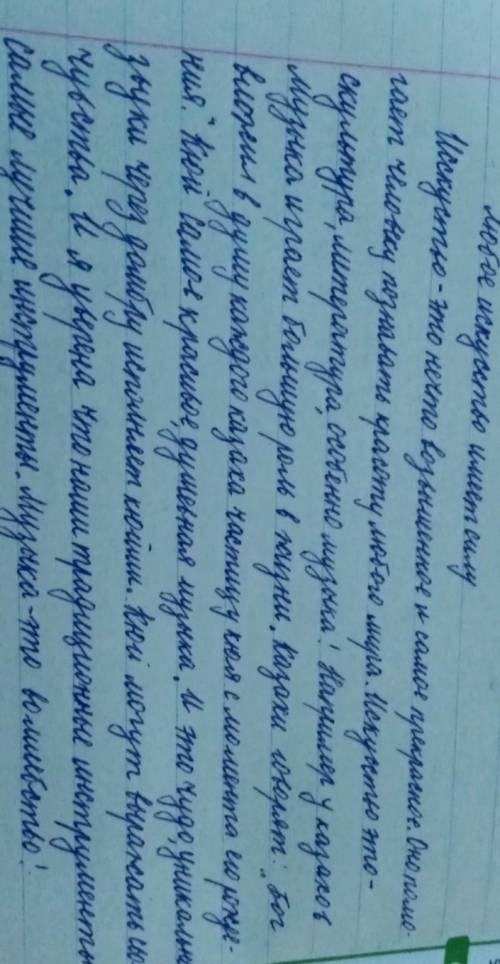 Любое искуство имеет силу
Искуство - это нечто возвышенное и самое прекрасное. Оно помо-
гает человеку познавать красоту любого мира. Искуство это -
скульптура, литература, особенно музыка! Например у казахов
музыка играет большую роль в жизни. Казахи говорят: "Бог
вложил в душу каждого казаха частицу кюя с момента его рожде-
ния." Кюй самое красивое, душевная музыка. И это чудо, уникальн
звуки через домбру исполняет кюйши. Кюй могут выражать
чувства. И я уверена что наши традиционные инструменты
самые лучшие инструменты. Музыка - это волшебство!